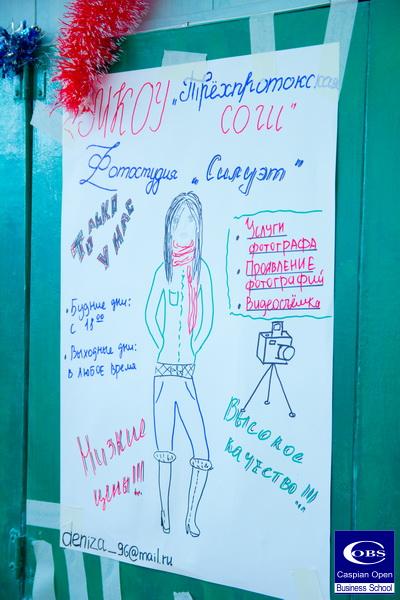 МКОУ „Трёхпротокская
СОШ"
Фотостудия „Силуэт"
Только
у нас
• Услуги
фотографа
• Проявление
фотографий
• Видеосъёмка
• Будние дни:
с 18⁰⁰
• Выходные дни:
в любое время
Низкие
цены!!!...
Высокое
качество!!!!...
deniza_96@mail.ru
COBS
Caspian Open
Business School